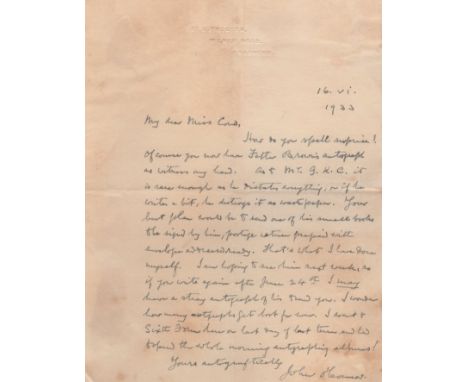 16. vi.
1933
My dear Miss Coud,
How do you spell surprise!
Of course you now have Father Brown's autograph
as witness my hand. As to Mr. G. K. C. it
is rare enough as he dictates everything, or if he
writes a bit, he destroys it as waste paper. Your
best plan would be to send one of his small books
to be signed by him, postage return prepaid with
envelope addressed ready. That is what I have done
myself. I am hoping to see him next week, so
if you write again after June 24th I may
have a stray autograph of his to send you. I wonder
how many autographs get lost for ever. I went to
Sixth Form on last day of last term and had
to spend the whole morning autographing albums!
Yours autographically
John O'Connor.